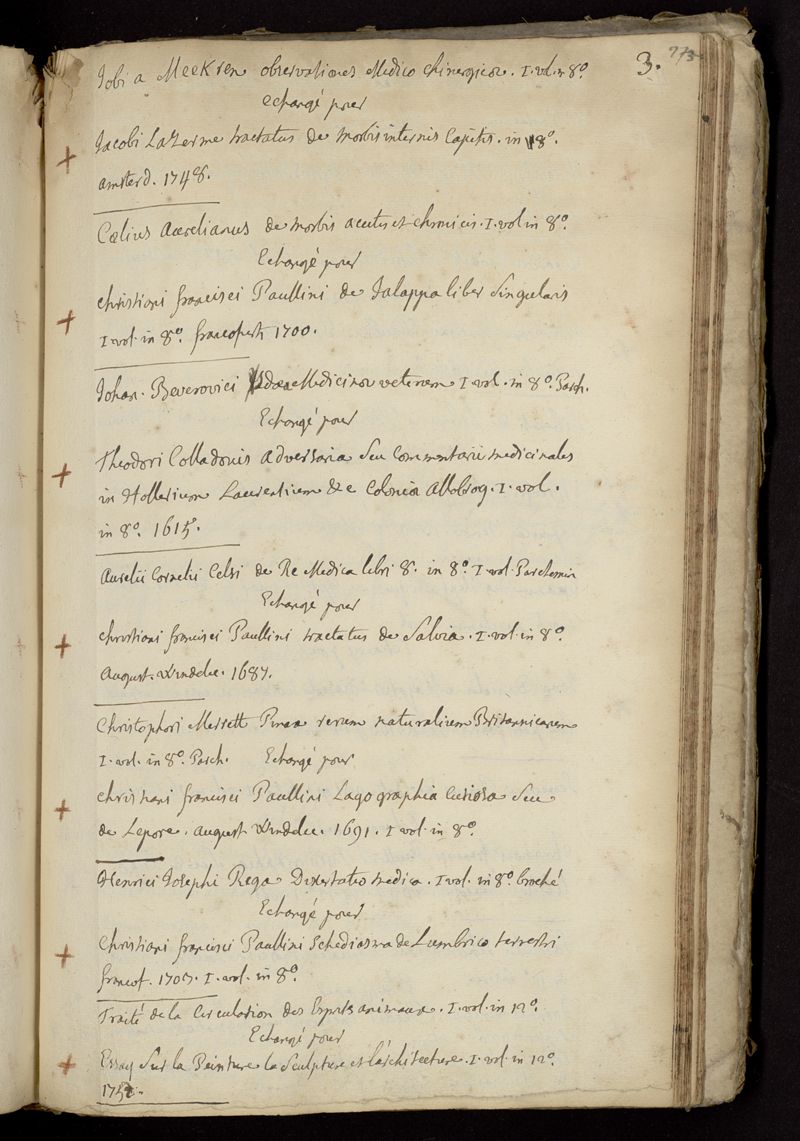 3. 273
Iobi a Meekren observationes Medico chirurgicæ. I. vol. in 8º.
echangé pour
+ Jacobi Lazerme tractatus de morbis internis Capitis. in 8º.
amsterd. 1748.
Cælius Aurelianus de morbis acutis et chronicis. I. vol in 8º
Echangé pour
+ christiani francisci Paullini de Jalappa liber Singularis
I. vol. in 8º. francofurti 1700.
Iohan. Beverovici Idea Medicinæ veterum I vol. in 8º. Parch.
Echangé pour
+ Theodori Colladonis adversaria Seu Commentarii medicinales
in Hollerium Laurentium &c Colonia Allobrog. I. vol.
in 8º. 1615.
Aurelii Cornelii Celsi de Re Medica libri 8. in 8º. I vol. Parchemin
Echangé pour
+ christiani francisci Paullini tractatus de Salvia. I. vol. in 8º.
August. Vindelic. 1687.
Christophori Merrett Pinax rerum naturalium Britannicarum
I. vol. in 8º. Parch. Echangé pour
+ christiani francisci Paullini Lagographia Curiosa Seu
de Lepore. august. Vindelic. 1691. I vol. in 8º.
Henrici Iosephi Rega Dissertatio medica. I vol. in 8º. broché
Echangé pour
+ Christiani francisci Paullini Schediasma de Lumbrico terrestri
francof. 1703. I. vol. in 8º.
Traité de la Circulation des Esprits animaux. I. vol. in 12º.
Echangé pour
+ Essay Sur la Peinture la Sculpture et l'architecture. I. vol. in 12º.